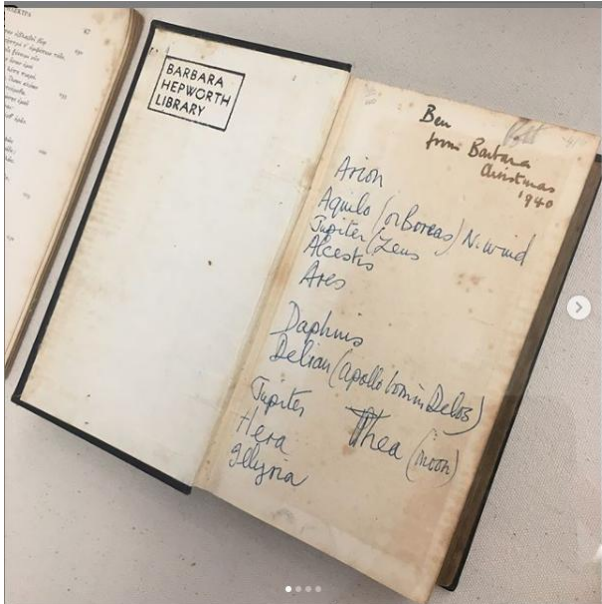 67
BARBARA
HEPWORTH
LIBRARY
Ben
from Barbara
Christmas
1940
Arion
Aquilo (or Boreas) N. wind
Jupiter (Zeus
Alcestis
Ares
Daphnis
Delian (apollo born in Delos)
Jupiter
Thea (moon)
Hera
Illyria